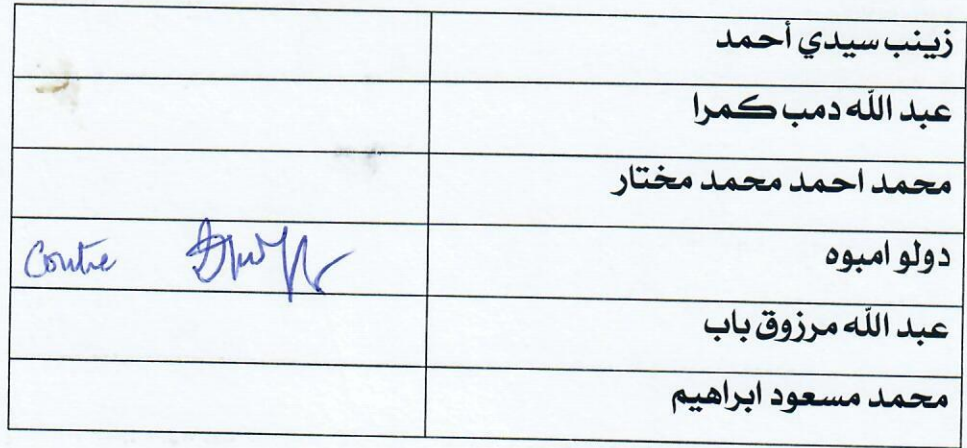 زينب سيدي أحمد
عبد الله دمب كمرا
محمد احمد محمد مختار
دولو امبوه
Contre
عبد الله مرزوق باب
محمد مسعود ابراهيم